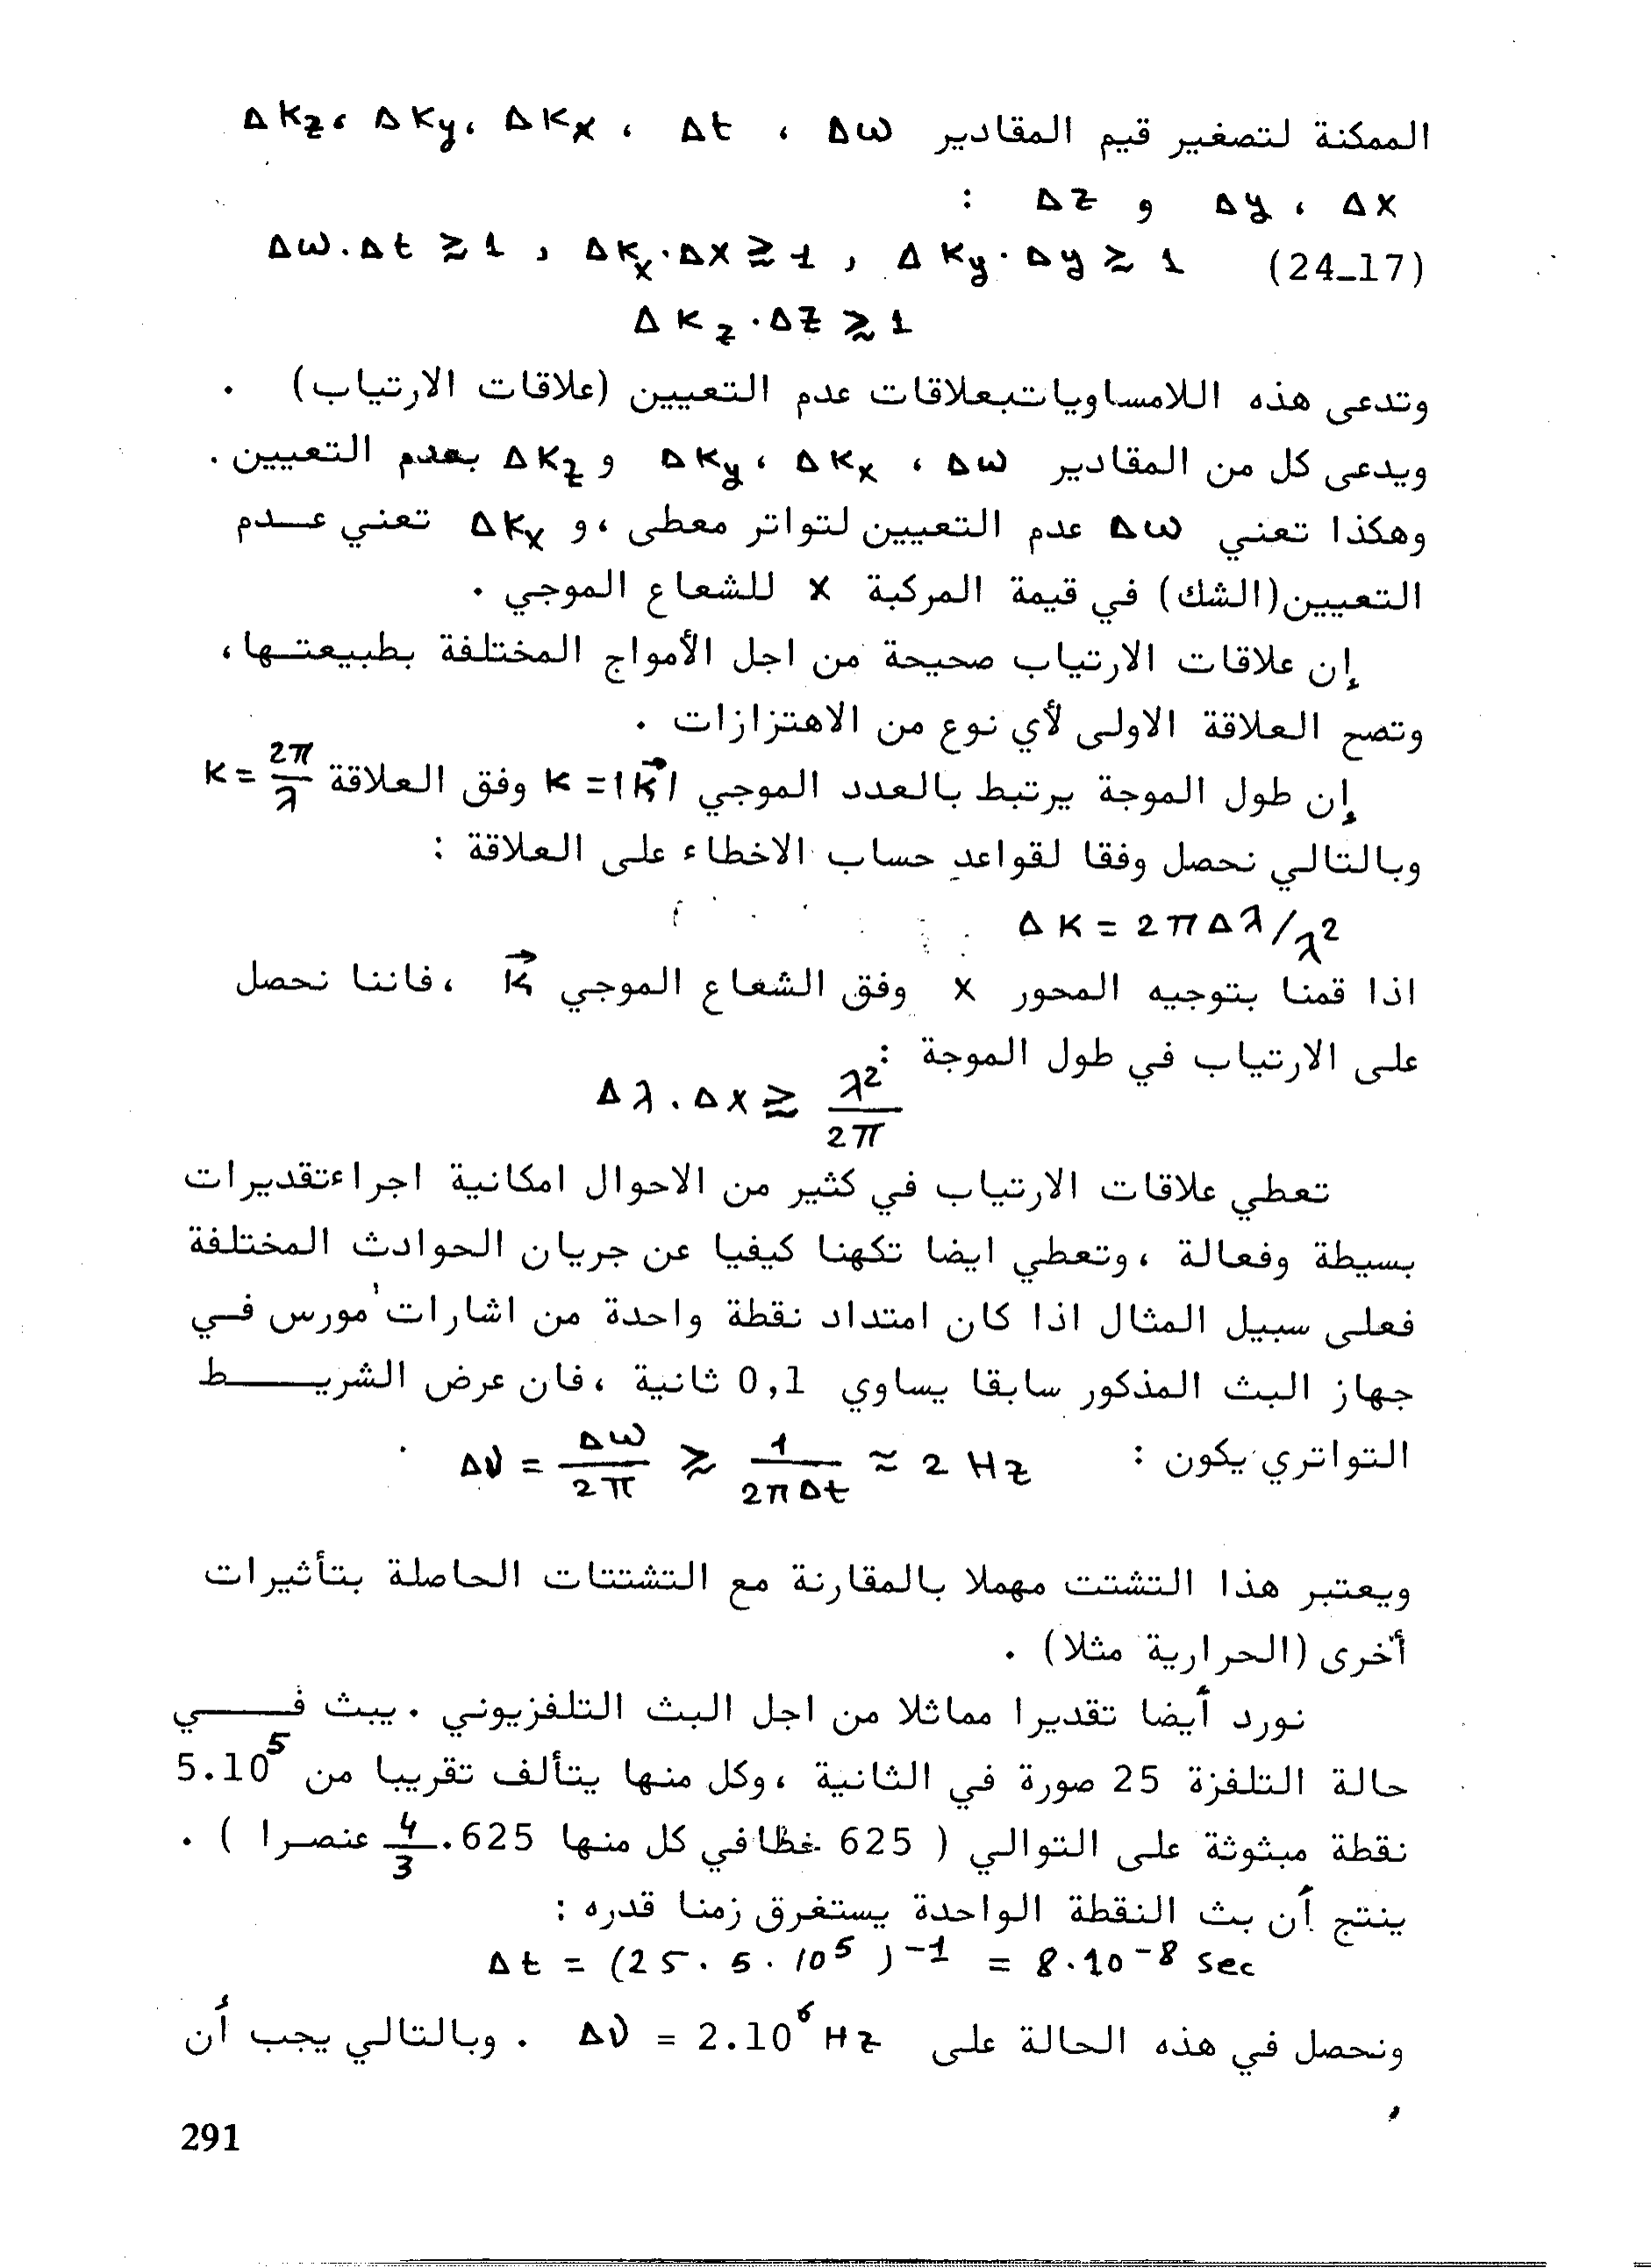 الممكنة لتصغير قيم المقادير Δω ، Δt ، ΔKx ، ΔKy ، ΔKz
Δx ، Δy و Δz :
Δω.Δt ≳ 1 , ΔKx.Δx ≳ 1 , ΔKy.Δy ≳ 1 (24_17)
ΔKz.Δz ≳ 1
وتدعى هذه اللامساوياتبعلاقات عدم التعيين (علاقات الارتياب) .
ويدعى كل من المقادير Δω ، ΔKx ، ΔKy و ΔKz بعدم التعيين .
وهكذا تعني Δω عدم التعيين لتواتر معطى ،و ΔKx تعني عـدم
التعيين(الشك) في قيمة المركبة x للشعاع الموجي .
إن علاقات الارتياب صحيحة من اجل الأمواج المختلفة بطبيعتـها،
وتصح العلاقة الاولى لأي نوع من الاهتزازات .
إن طول الموجة يرتبط بالعدد الموجي K = |K⃗| وفق العلاقة K = 2π/λ
وبالتالي نحصل وفقا لقواعد حساب الاخطاء على العلاقة :
ΔK = 2πΔλ/λ²
اذا قمنا بتوجيه المحور x وفق الشعاع الموجي K⃗ ،فاننا نحصل
على الارتياب في طول الموجة :
Δλ.Δx ≳ λ²/2π
تعطي علاقات الارتياب في كثير من الاحوال امكانية اجراءتقديرات
بسيطة وفعالة ،وتعطي ايضا تكهنا كيفيا عن جريان الحوادث المختلفة
فعلى سبيل المثال اذا كان امتداد نقطة واحدة من اشارات مورس فـي
جهاز البث المذكور سابقا يساوي 0,1 ثانية ،فان عرض الشريـــط
التواتري يكون : Δν = Δω/2π ≳ 1/2πΔt ≈ 2 Hz
ويعتبر هذا التشتت مهملا بالمقارنة مع التشتتات الحاصلة بتأثيرات
أخرى (الحرارية مثلا) .
نورد أيضا تقديرا مماثلا من اجل البث التلفزيوني . يبث فــــي
حالة التلفزة 25 صورة في الثانية ،وكل منها يتألف تقريبا من 5.10⁵
نقطة مبثوثة على التوالي ( 625 خطافي كل منها 625.4/3 عنصرا ) .
ينتج أن بث النقطة الواحدة يستغرق زمنا قدره :
Δt = (25 . 5 . 10⁵ )⁻¹ = 8.10⁻⁸ sec
ونحصل في هذه الحالة على Δν = 2.10⁶ Hz . وبالتالي يجب أن
291